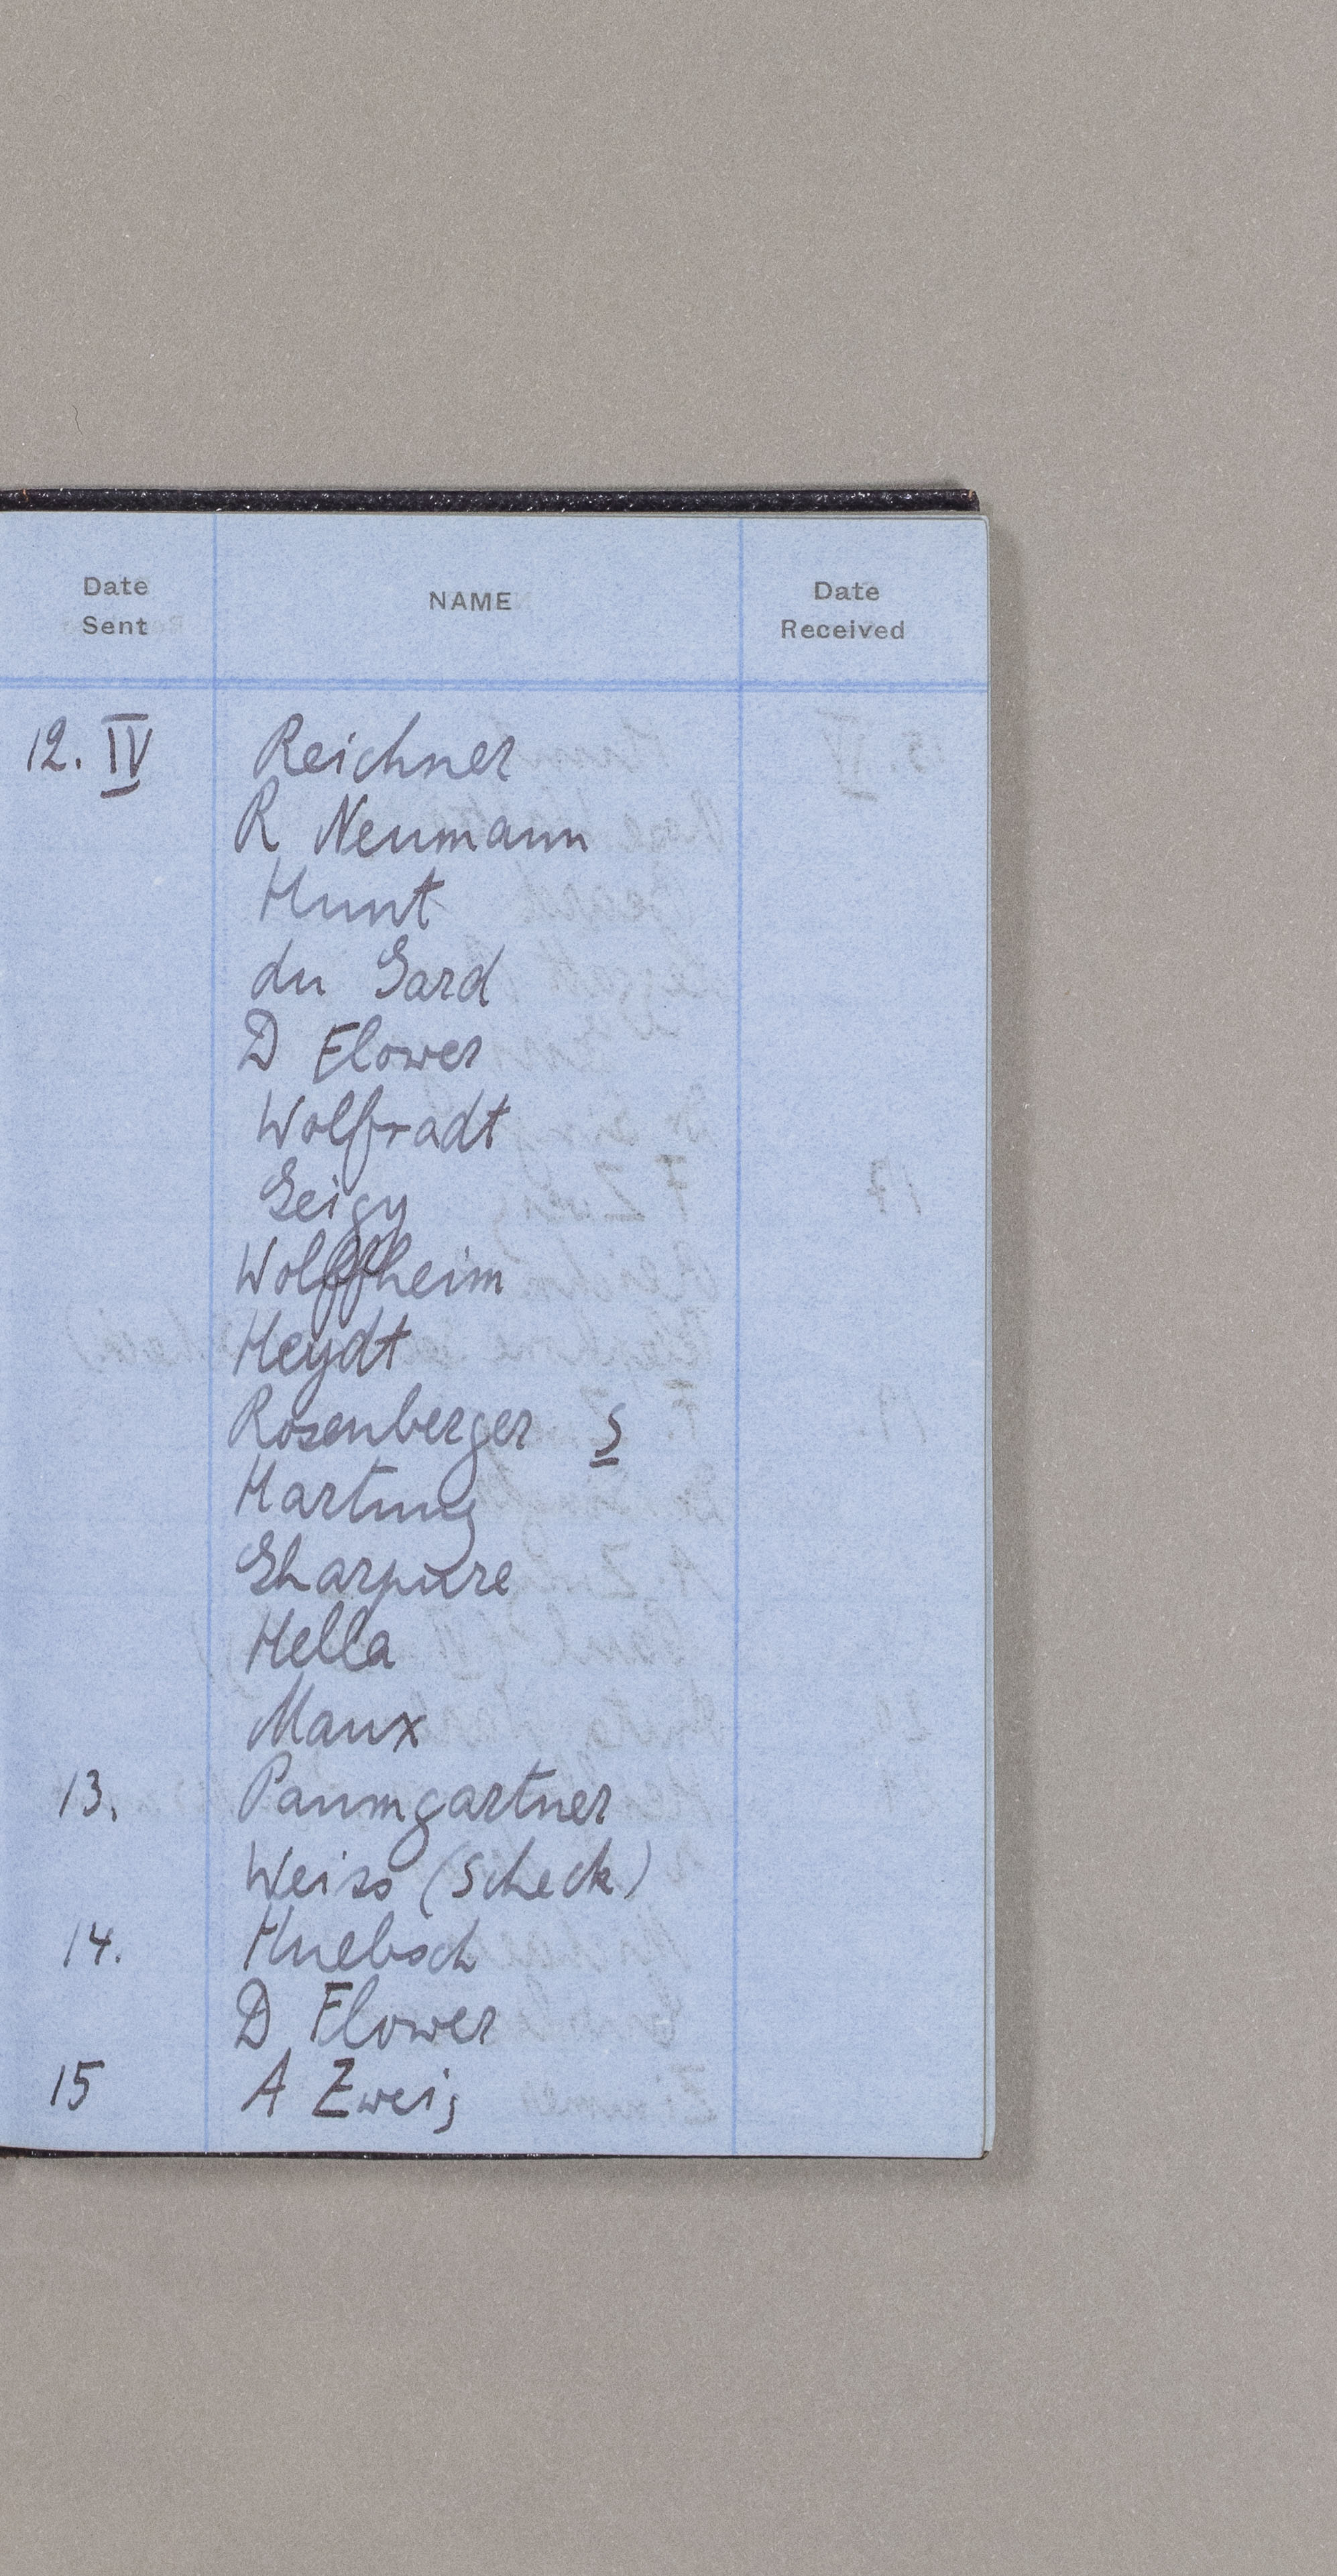 Date Sent NAME Date Received
12. IV Reichner
R Neumann
Hunt
du Gard
D Flower
Wolfradt
Geigy
Wolffheim
Heydt
Rosenberger S
Hartung
Gharpure
Hella
Manx
13. Paumgartner
Weiss (Scheck)
14. Huebsch
D Flower
15 A Zweig